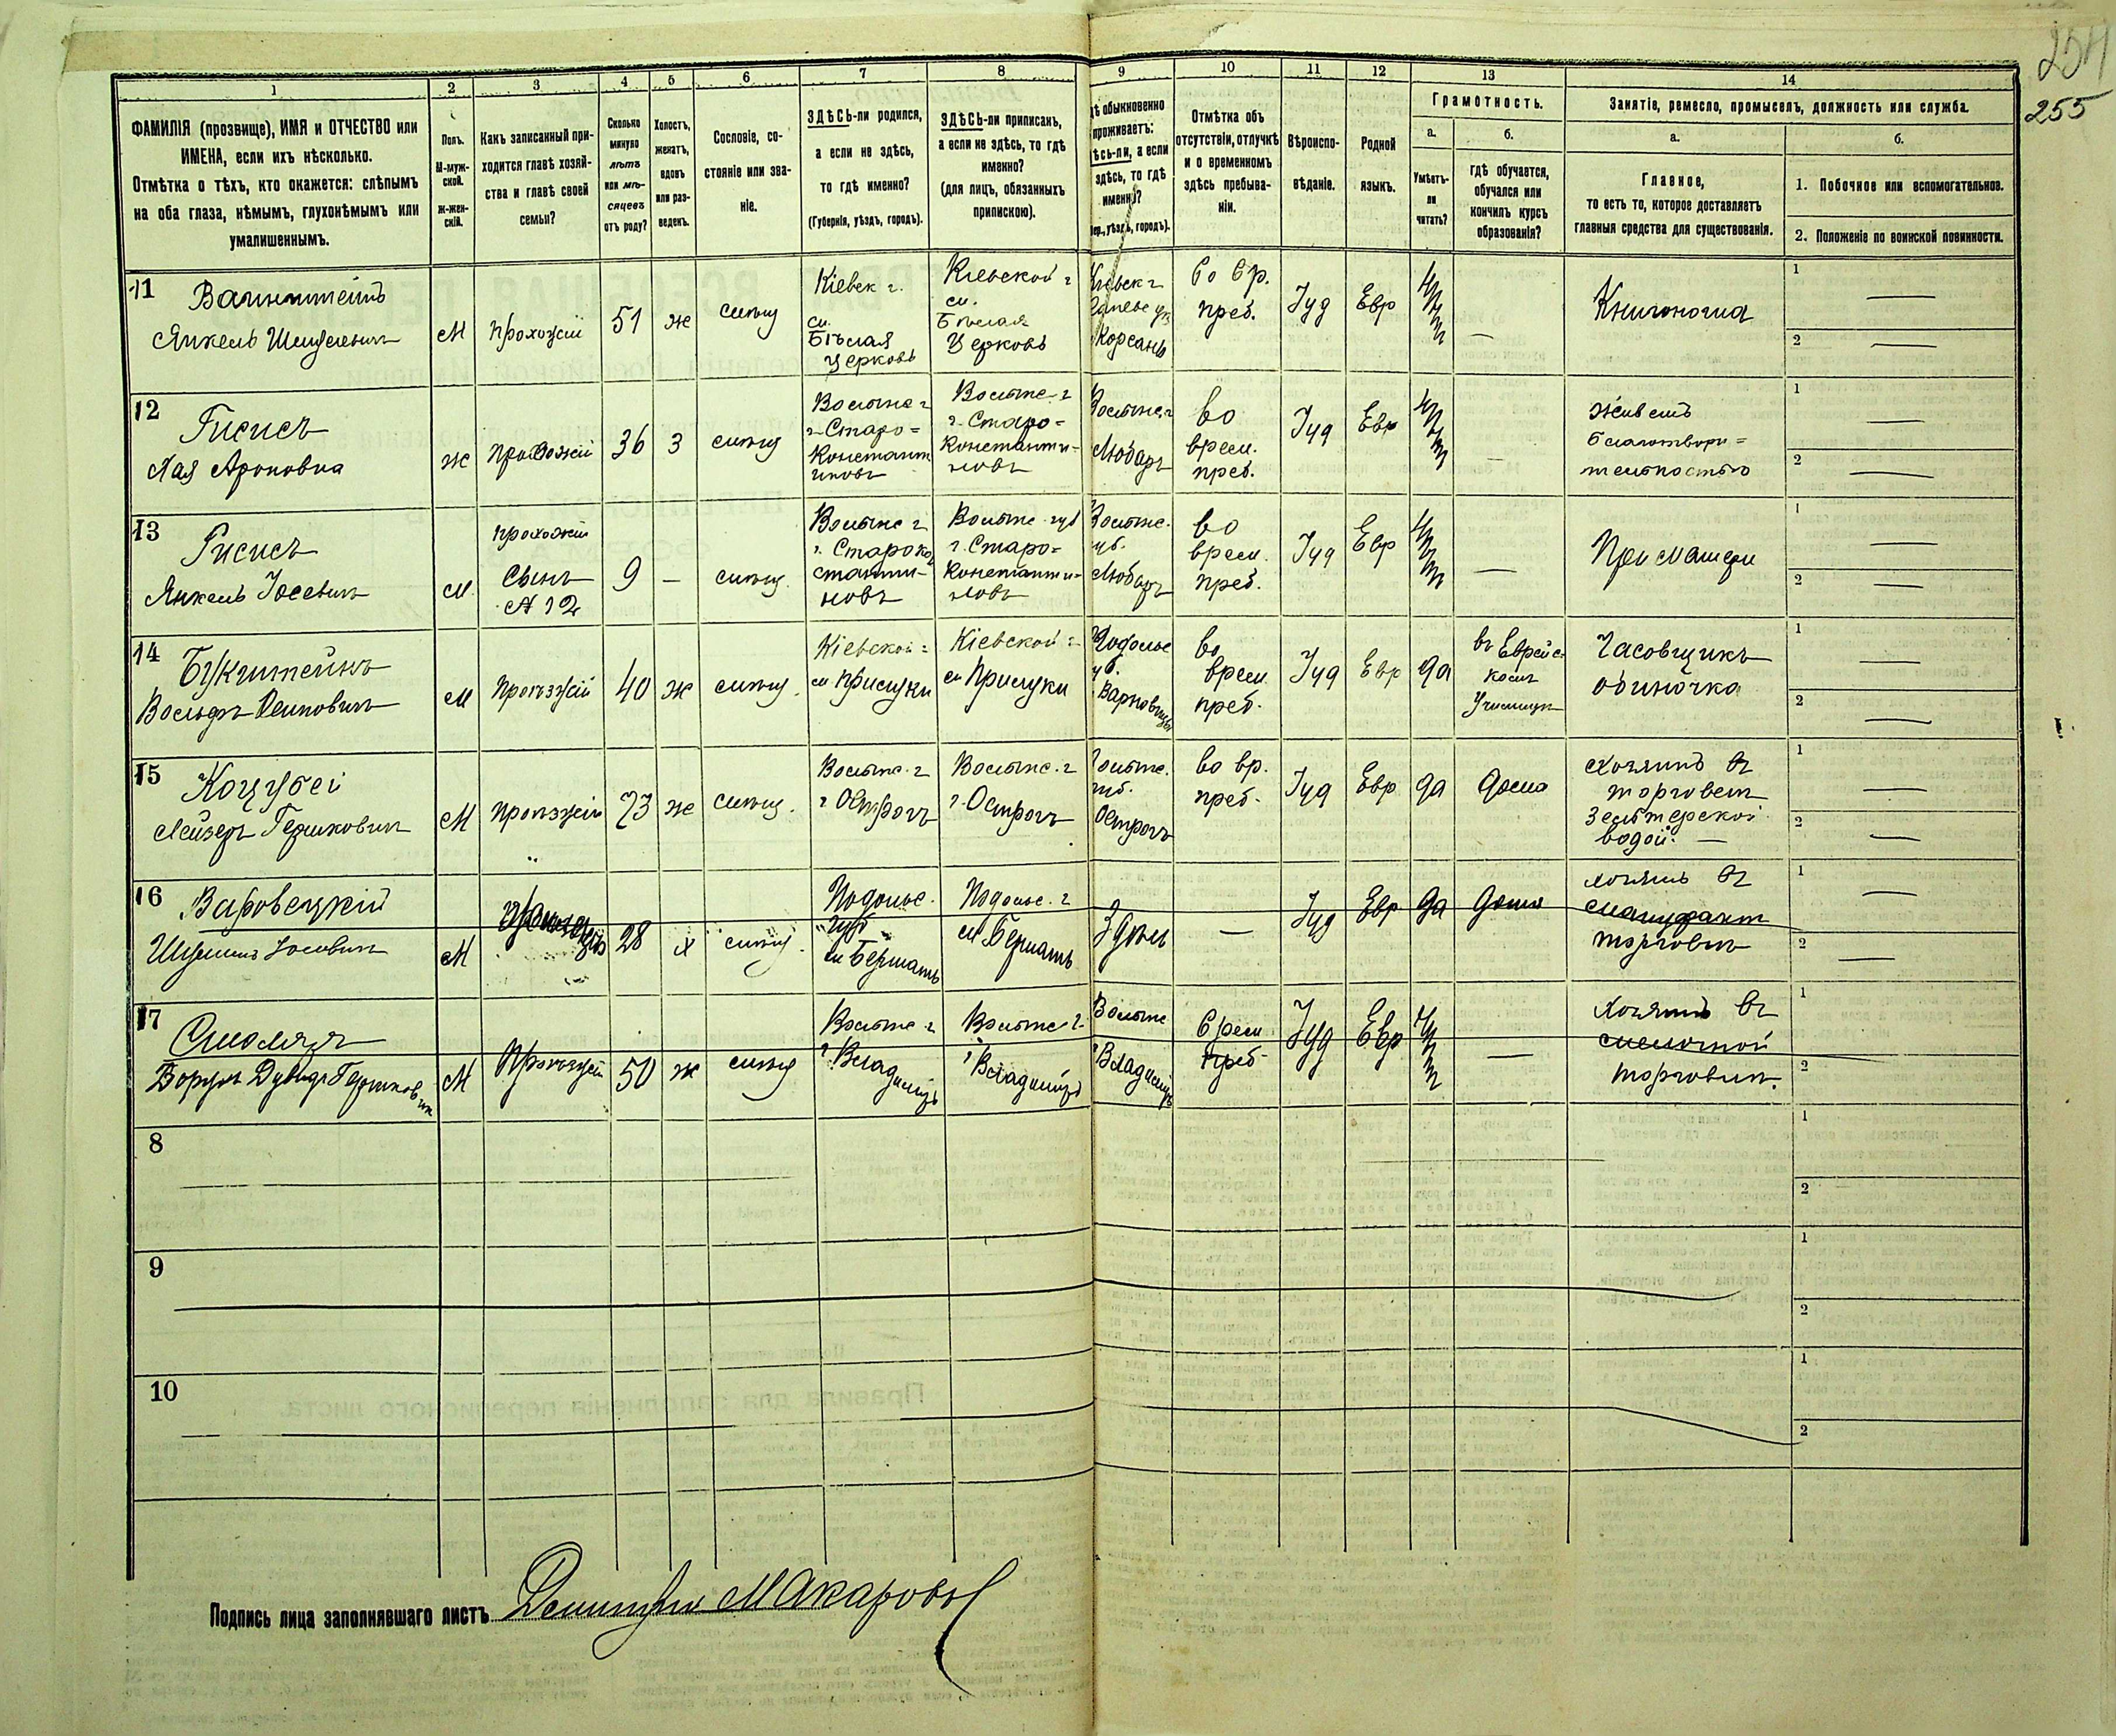 254
255
1 2 3 4 5 6 7 8 9 10 11 12 13 14
ФАМИЛІЯ (прозвище), ИМЯ и ОТЧЕСТВО или
ИМЕНА, если ихъ нѣсколько.
Отмѣтка о тѣхъ, кто окажется: слѣпымъ
на оба глаза, нѣмымъ, глухонѣмымъ или
умалишеннымъ.
Полъ.
М-муж-
ской.
Ж-жен-
скій.
Какъ записанный при-
ходится главѣ хозяй-
ства и главѣ своей
семьи?
Сколько
минуло
лѣтъ
или мѣ-
сяцевъ
отъ роду?
Холостъ,
женатъ,
вдовъ
или раз-
веденъ.
Сословіе, со-
стояніе или зва-
ніе.
ЗДѢСЬ-ли родился,
а если не здѣсь,
то гдѣ именно?
(Губернія, уѣздъ, городъ).
ЗДѢСЬ-ли приписанъ,
а если не здѣсь, то гдѣ
именно?
(для лицъ, обязанныхъ
припискою).
обыкновенно
проживаетъ:
а если
здѣсь, то гдѣ
именно?
уѣздъ, городъ).
Отмѣтка объ
отсутствіи, отлучкѣ
и о временномъ
здѣсь пребыва-
ніи.
Вѣроиспо-
вѣданіе.
Родной
языкъ.
Грамотность.
а.
Умѣетъ-
ли
читать?
б.
гдѣ обучается,
обучался или
кончилъ курсъ
образованія?
Занятіе, ремесло, промыселъ, должность или служба.
а.
Главное,
то есть то, которое доставляетъ
главныя средства для существованія.
б.
1. Побочное или вспомогательное.
2. Положеніе по воинской повинности.
11
Янкель
М
прохожій
51
ж
Кіевск г.
м.
Бѣлая
Церковь
Кіевской г
м.
Бѣлая
Церковь
Корсань
во вр.
преб.
Іуд
Евр
нѣтъ
—
1 —
2 —
12
Гисисъ
Хая Ароновна
ж
прохожій
36
З
Волынс г
г. Старо=
Константи
новъ
Волынс г
г. Старо=
Константи-
новъ
Волынс г
Любаръ
во
врем.
преб.
Іуд
Евр
нѣтъ
—
Живетъ
благотвори=
тельностью
1 —
2 —
13
Гисисъ
Янкель Іосевичъ
м
прохожій
Сынъ
№ 12
9
—
Волынс г
г. Староко
станти-
новъ
Волынс губ
г. Старо=
Константи=
новъ
Волынс.
губ.
Любаръ
во
врем.
преб.
Іуд
Евр
нѣтъ
—
При матери
1 —
2 —
14
Букштейнъ
Вольфъ
м
Проѣзжій
40
ж
Кіевской г
м Прилуки
Кіевской г
м Прилуки
Подольс
губ.
во
врем
преб.
Іуд
Евр
да
въ Еврейс-
комъ
Училищѣ
Часовщикъ
одиночка
1 —
2 —
15
Коцубей
Лейзеръ Гершковичъ
М
Проѣзжій
73
ж
Волынс. г
г Острогъ
Волынс. г
г. Острогъ
Волынс.
губ.
Острогъ
во вр.
преб.
Іуд
Евр
да
дома
Хозяинъ въ
торговлѣ
Зельтерской
водой. —
1 —
2 —
16
Варовецкій
Іосевичъ
М
28
х
Подольс.
губ
м Бершать
Подольс. г
м. Бершать
Здѣсь
—
Іуд
Евр
да
дома
хозяинъ въ
мануфакт
торговлѣ
1 —
2 —
17
Смоляръ
Борухъ Дувидъ Гершковичъ
М
Проѣзжій
50
ж
Волынс г
г. Владиміръ
Волынс г
г Владиміръ
Волынс
г Владиміръ
Врем
преб
Іуд
Евр
нѣтъ
—
Хозяинъ въ
мелочной
торговлѣ.
1
2
8
1
2
9
1
2
10
1
2
Подпись лица заполнявшаго листъ Димитрій Макаровъ